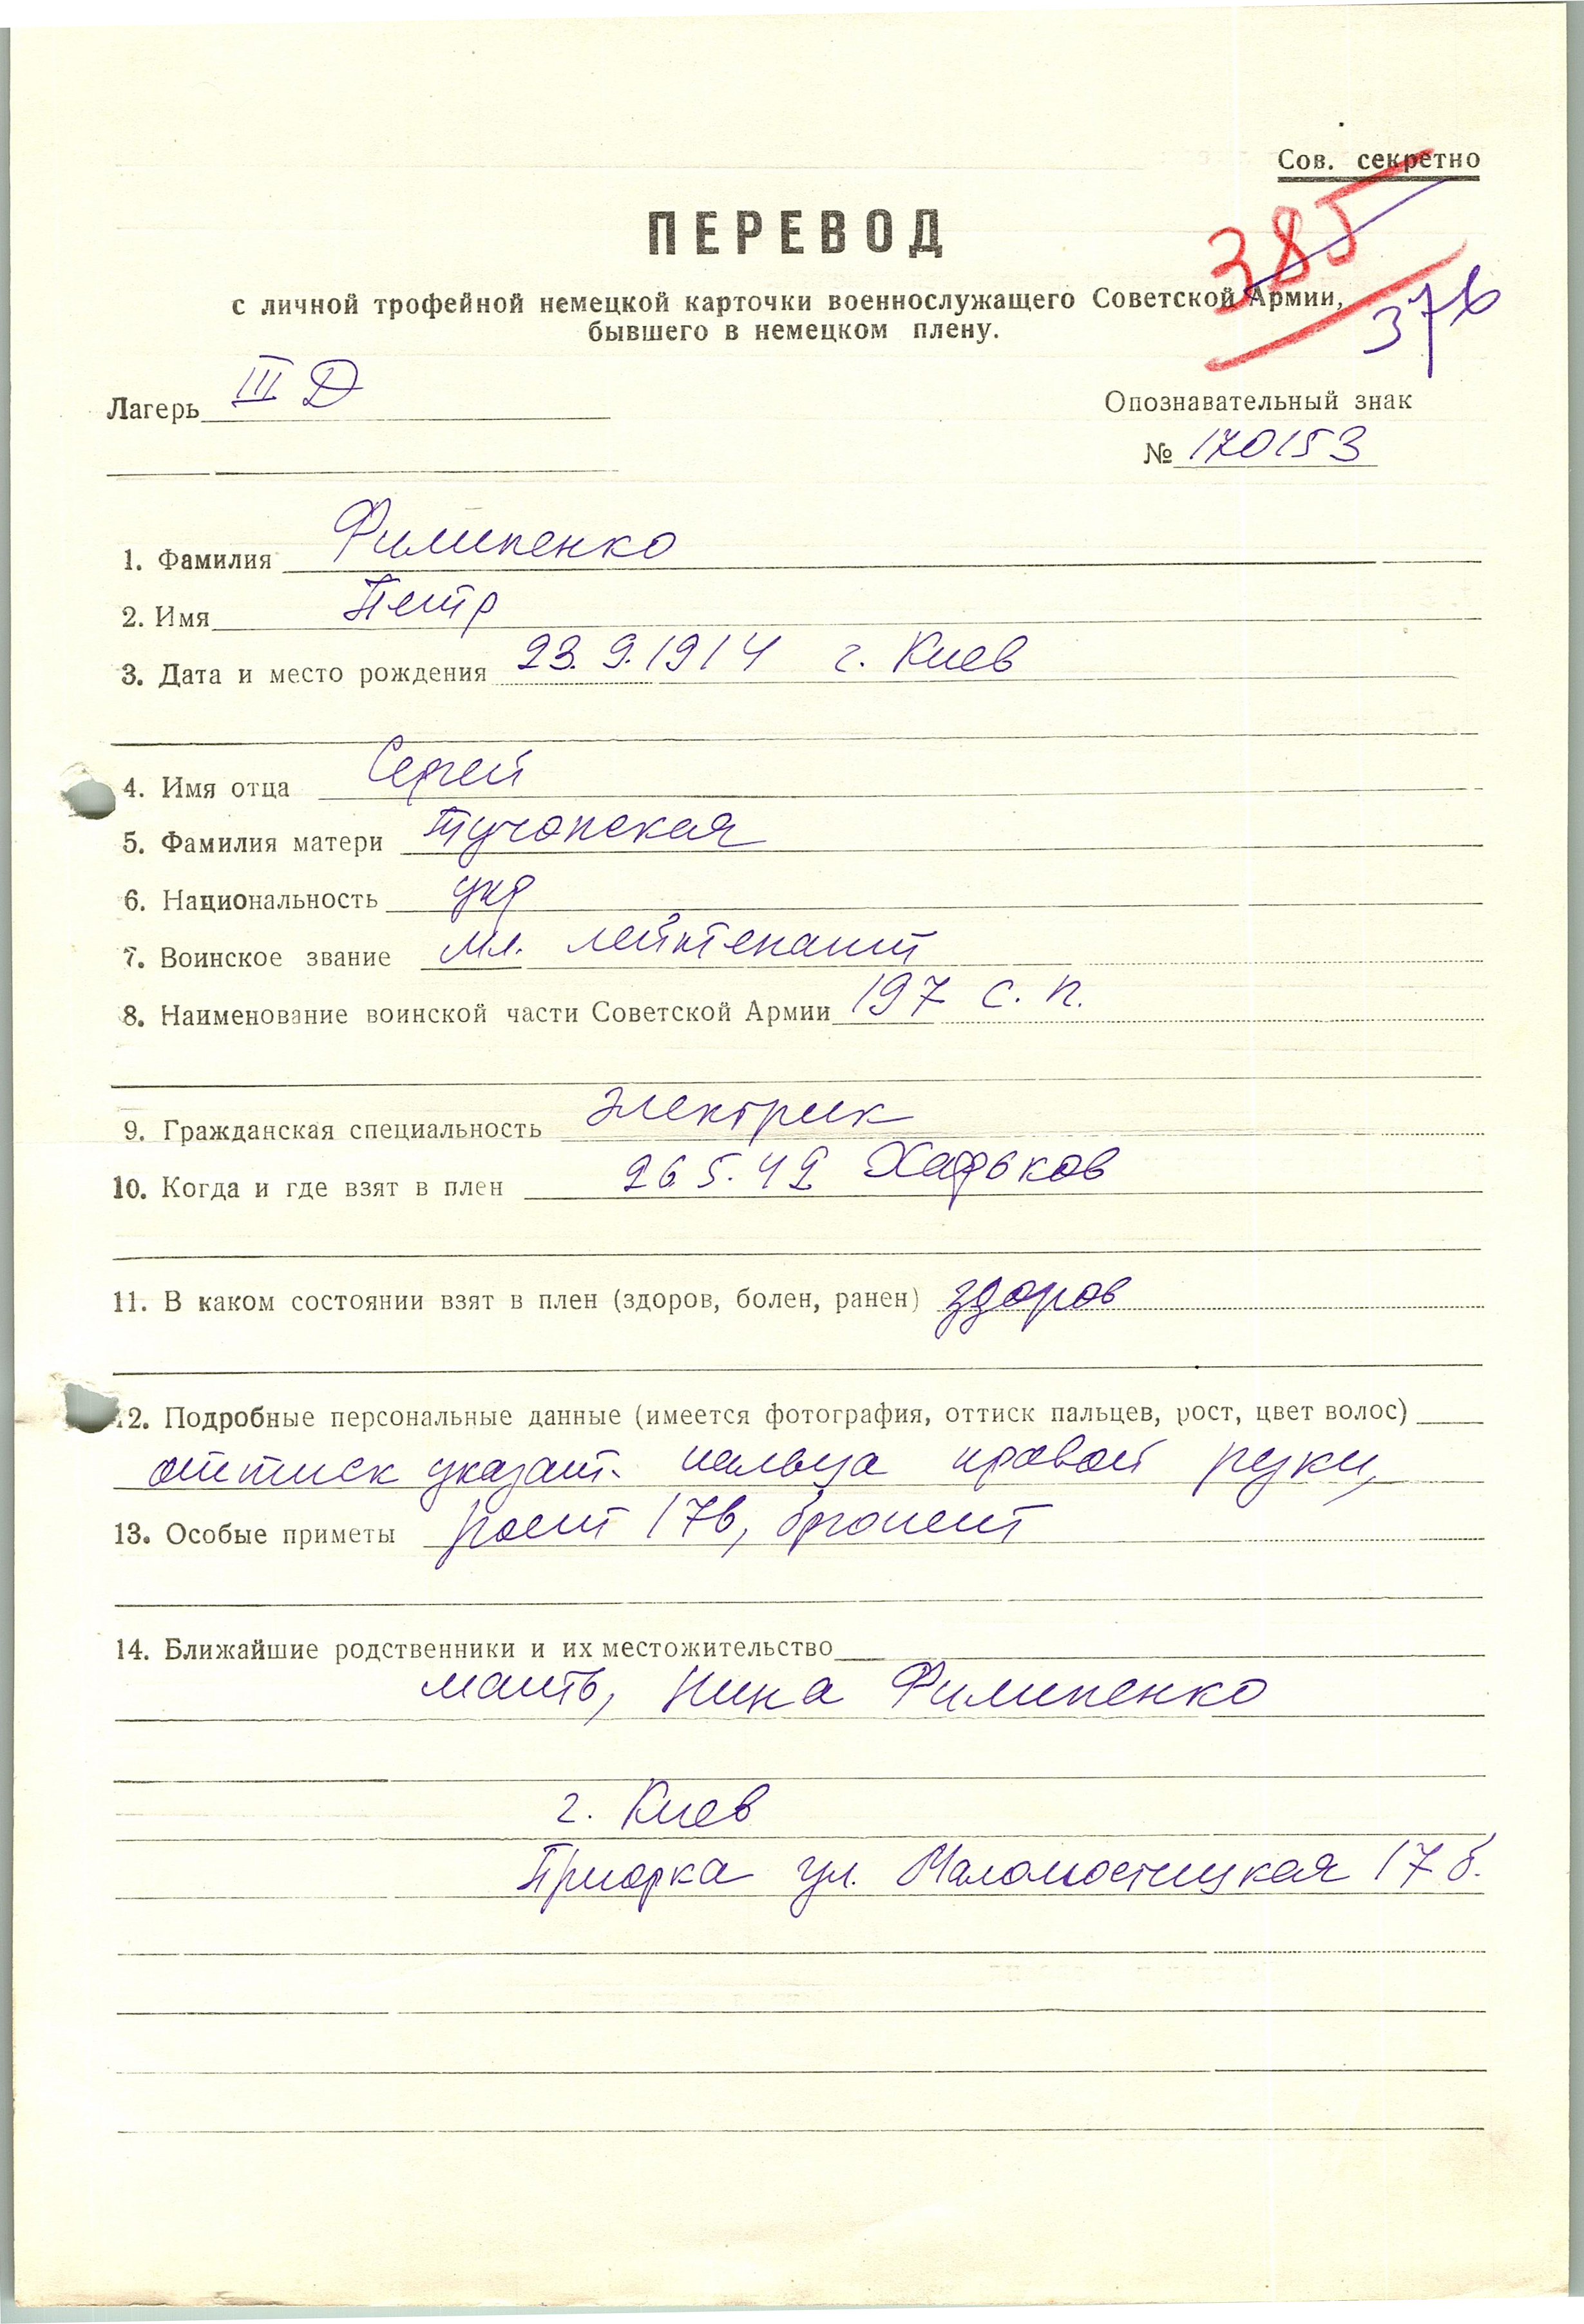 Сов. секретно
ПЕРЕВОД
385
с личной трофейной немецкой карточки военнослужащего Советской Армии,
376
бывшего в немецком плену.
Лагерь III Д
Опознавательный знак
№ 170153
1. Фамилия Филипенко
2. Имя Петр
3. Дата и место рождения 23.9.1914 г. Киев
4. Имя отца Сергей
5. Фамилия матери
6. Национальность укр
7. Воинское звание мл. лейтенант
8. Наименование воинской части Советской Армии 197 с. п.
9. Гражданская специальность электрик
10. Когда и где взят в плен 26.5.42 Харьков
11. В каком состоянии взят в плен (здоров, болен, ранен) здоров
12. Подробные персональные данные (имеется фотография, оттиск пальцев, рост, цвет волос)
оттиск указат. пальца правой руки,
13. Особые приметы рост 176, брюнет
14. Ближайшие родственники и их местожительство
мать, Нина Филипенко
г. Киев
Приорка ул. 17 б.